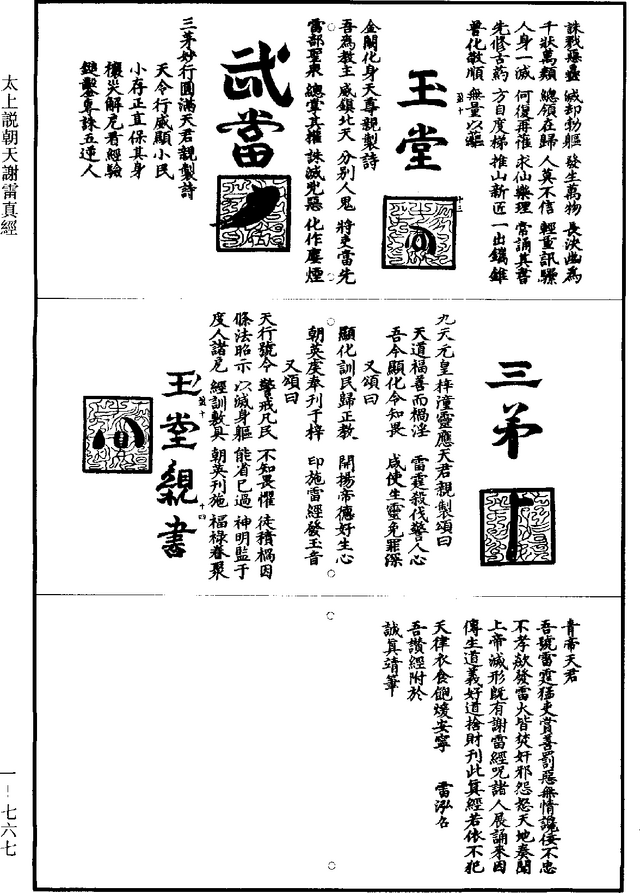 千狀萬類 總領在歸 人莫不信 輕重訊
人身一滅 何復再 求仙樂理 常誦其書
先修古葯 方自度梯 推山新匠 一出鐫錐
普化敬順 無量以
玉堂
金闕化身天尊親製詩
吾為教主 威鎮北天 分別人鬼 將吏當先
雷部聖衆 總掌其權 誅滅兇惡 化作塵煙
武當
三茅妙行圓滿天君親製詩
天令行威顯小民
小存正直保其身
禳災解厄看經驗
鎚鑿專誅五逆人
三茅
九天元皇梓潼靈應天君親製頌曰
天道福善而禍淫 雷霆殺伐警人心
吾今顯化令知畏 咸使生靈免罪深
又頌曰
顯化訓民歸正教 開揚帝德好生心
朝英虔奉刊千梓 印施雷經發玉音
又頌曰
天行號令 警戒凡民 不知畏懼 徒積禍因
條法昭示 以滅身軀 能省己過 神明監于
度人諸厄 經訓敷具 朝英刊施 福祿眷聚
玉堂親書
青帝天君
吾號雷霆猛吏賞善罰惡無情讒佞不忠
不孝欻發雷火皆焚奸邪怨怒天地奏聞
上帝滅形旣有謝雷經呪諸人展誦來因
傳生道義好道捨財刊此真經若依不犯
天律衣食飽煖安寧 雷泓名
吾讚經附於
誠真靖筆
太上説朝天謝雷真經
一-七六七